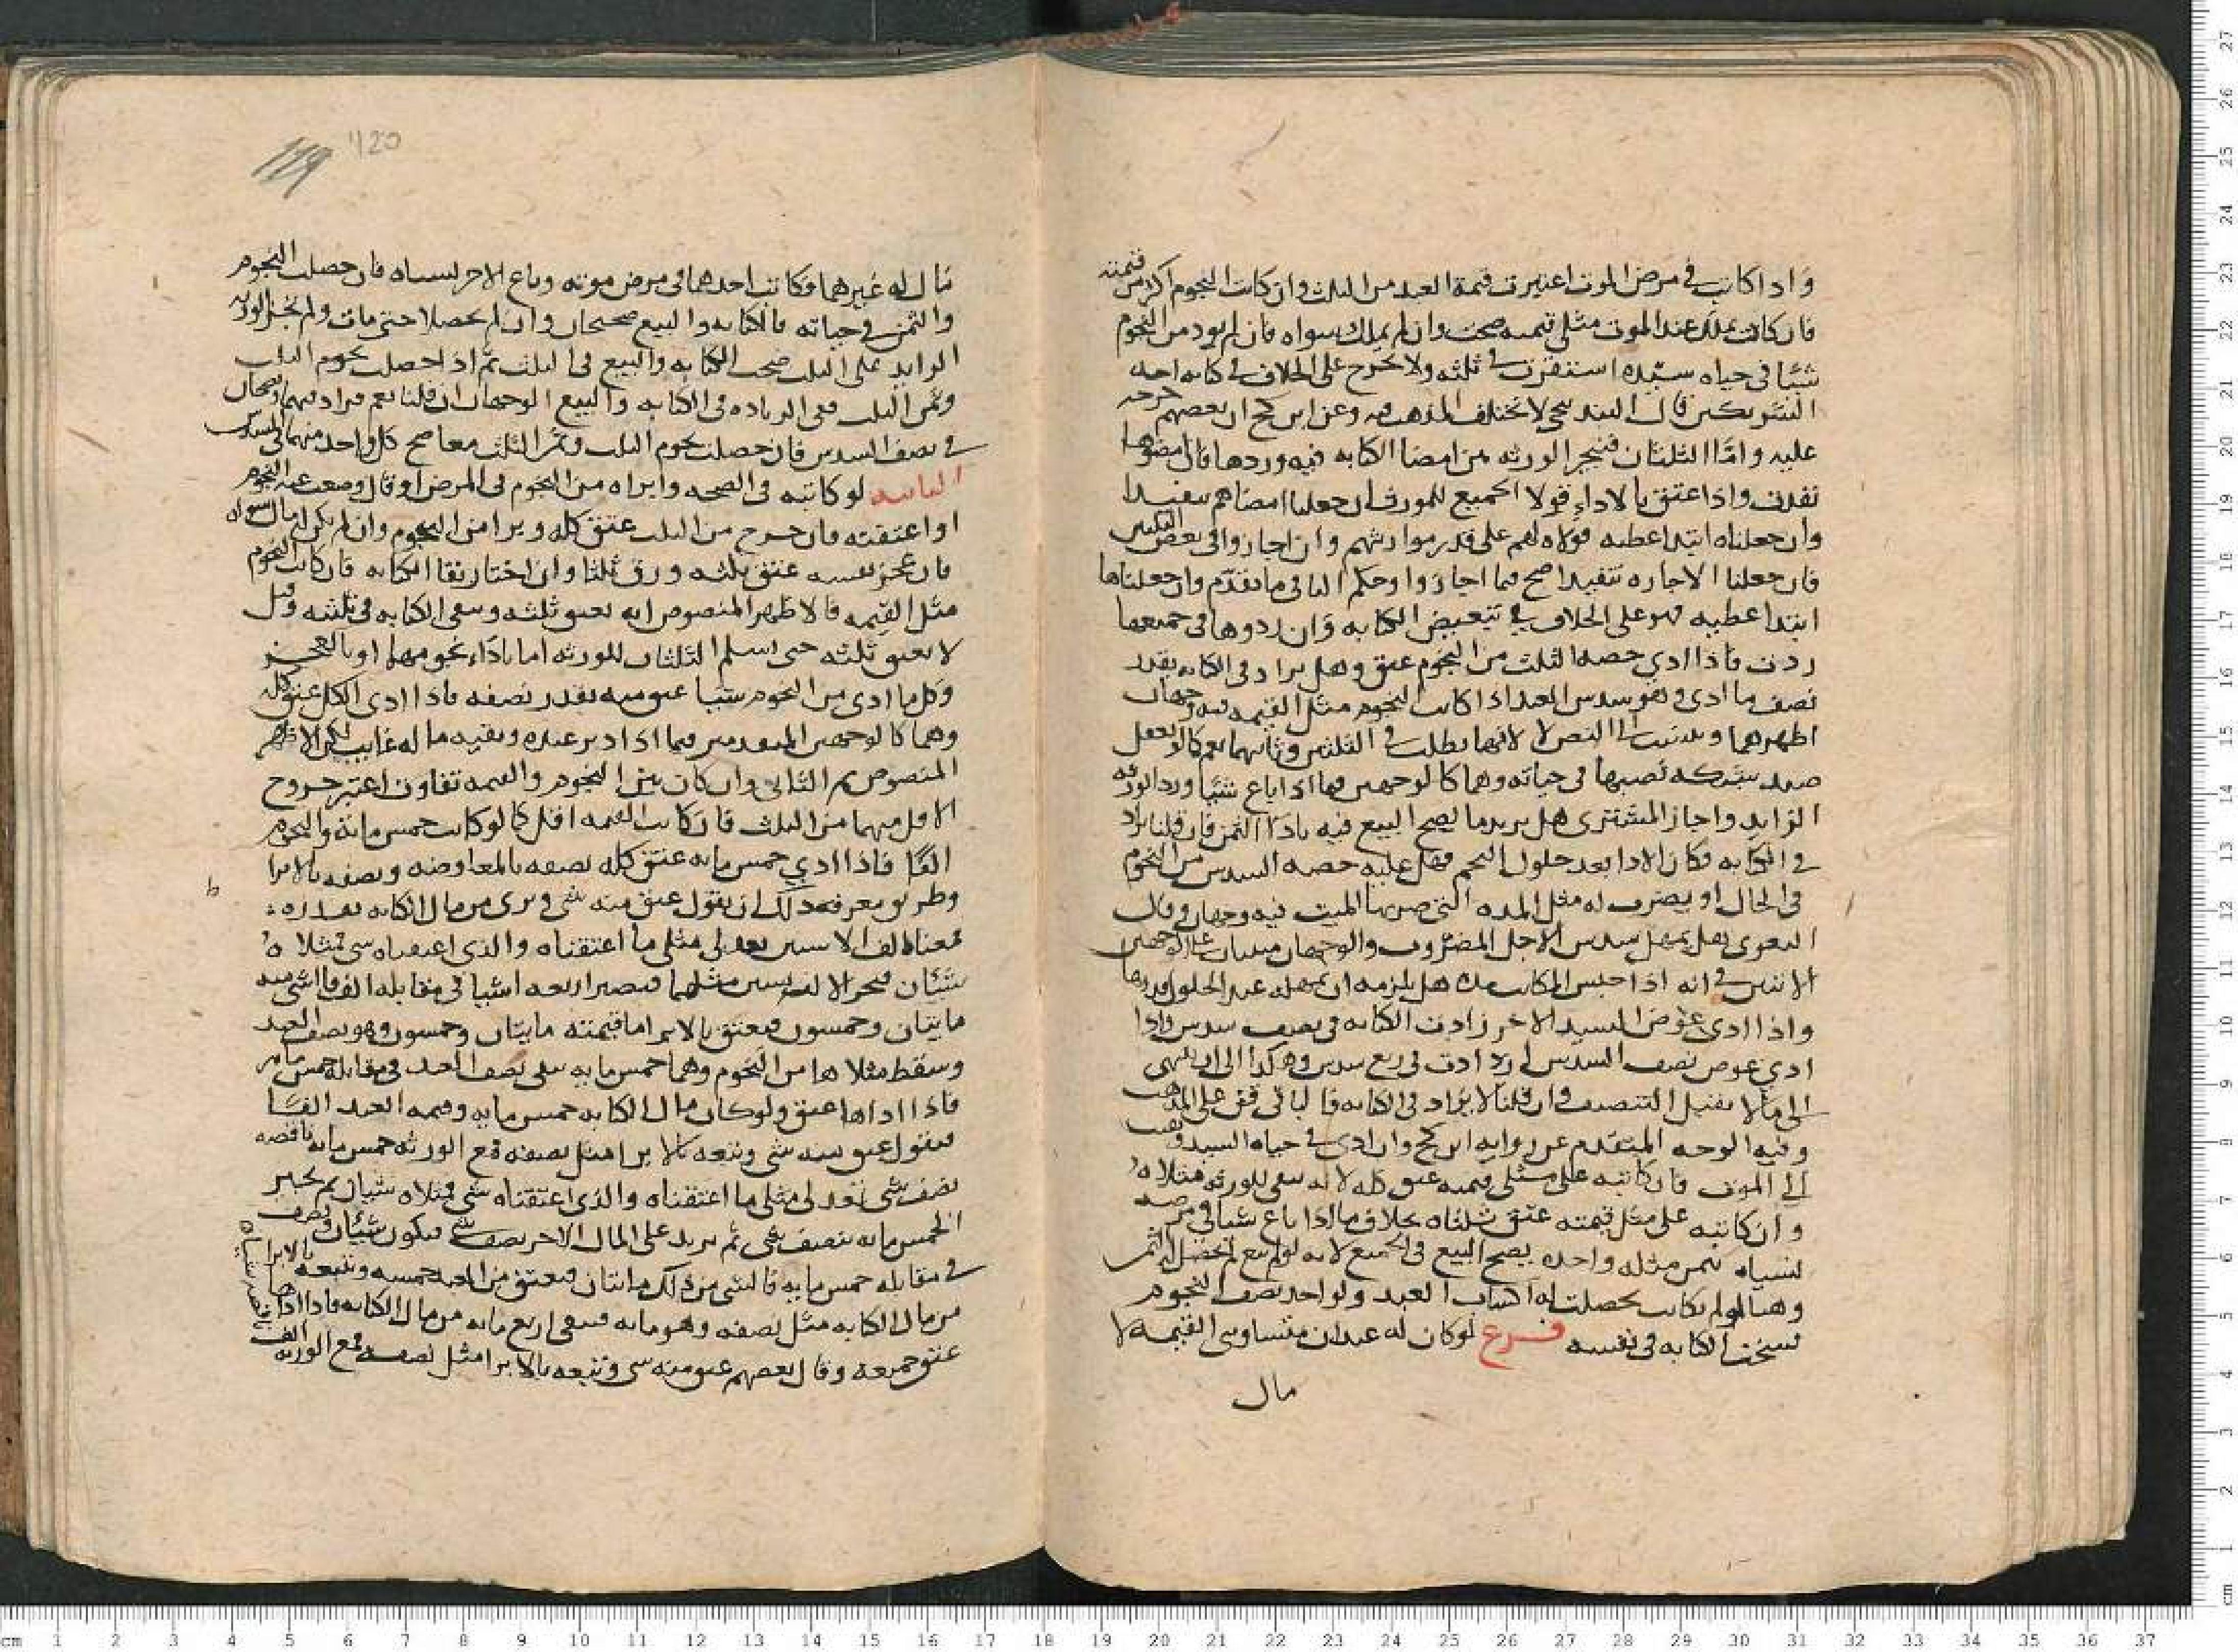 واذا كاتب في مرض الموت اعتبرت قيمة العبد من الثلث وان كانت النجوم اكثر من قيمته
فان كان يملك عند الموت مثلى قيمته صحت وان لم يملك سواه فان لم يود من النجوم
شيا في حياه سيده استقرت في ثلثه ولا تخرج على الخلاف في كتابه احد
الشريكين قال البندنيجي لا تختلف المذهب فيه وعن ابن كج ان بعضهم خرجه
عليه واما الثلثان فيتخير الورثه بين امضا الكتابه فيه وردها فان امضوها
نفذت واذا عتق بالاداء فولا الجميع للمورث ان جعلنا امضاهم تنفيذا
وان جعلناه ابتدا عطيه فولاه لهم على قدر مواريثهم وان اجازوا في بعض الثلثين
فان جعلنا الاجازه تنفيذا صح فيما اجازوا وحكم الباقي ما تقدم وان جعلناها
ابتدا عطيه فهو على الخلاف في تبعيض الكتابه وان ردوها في جميعها
ردت فاذا ادي حصه الثلث من النجوم عتق وهل يزاد في الكتابه بقدر
نصف ما ادى وهو سدس العبد اذا كانت النجوم مثل القيمه فيه وجهان
اظهرهما وينسب الى النص لا لانها بطلت في الثلثين وثانيهما نعم كما لو
صيد بشبكه نصبها في حياته وهما كالوجهين فيما اذا باع شيا ورد الورثه
الزايد واجاز المشتري هل يزيد ما يصح البيع فيه باداء الثمن فان قلنا يزاد
في الكتابه فكان الادا بعد حلول النجم فهل عليه حصه السدس من النجوم
في الحال او يضرب له مثل المده التي ضربها الميت فيه وجهان وقال
البغوى هل يمهل سدس الاجل المضروب والوجهان مبنيان على الوجهين
الاتيين في انه اذا حبس المكاتب مده هل يلزمه ان يمهله عند الحلول قدرها
واذا ادى عوض السدس الاخر زادت الكتابه في نصف سدس واذا
ادي عوض نصف السدس زادت في ربع سدس وهكذا الى ان ينتهى
الى ما لا يقبل التنصيف وان قلنا لا يزاد في الكتابه فالباقي قن على المذهب
وفيه الوجه المتقدم عن روايه ابن كج وان ادى في حياه السيد
فان كاتبه على مثلى قيمته عتق كله لانه يبقى للورثه مثلاه
وان كاتبه على مثل قيمته عتق ثلثاه بخلاف ما اذا باع شيا في مرضه
نسياه بثمن مثله واحده يصح البيع في الجميع لانه لو لم يبع لم تحصل له الثمن
وهنا لو لم يكاتب حصلت له اكساب العبد ولو اخذ نصف النجوم
نسخت الكتابه في نفسه فرع لوكان له عبدان متساوى القيمه لا
مال
مال له غيرهما فكاتب احدهما في مرض موته وباع الاخر نسياه فان حصلت النجوم
والثمن في حياته فالكتابه والبيع صحيحان وان لم يحصلا حتى مات ولم يجز الورثه
الزايد على الثلث صحت الكتابه والبيع في الثلث ثم اذا حصلت نجوم الثلث
وثمن الثلث ففي الزياده في الكتابه والبيع الوجهان ان قلنا نعم فيزاد فيهما
في نصف السدس فان حصلت نجوم الثلث وثمن الثلث معا صح كل واحد منهما في السدس
الثانيه لو كاتبه في الصحه وابراه من النجوم في المرض او قال وضعت عنه النجوم
او اعتقته فان خرج من الثلث عتق كله وبرا من النجوم وان لم يكن له مال سواه
فان عجز نفسه عتق ثلثه ورق ثلثا وان اختار بقا الكتابه فان كانت النجوم
مثل القيمه فالاظهر المنصوص انه يعتق ثلثه وتبقى الكتابه في ثلثيه وقيل
لا يعتق ثلثه حتى يسلم الثلثان للورثه اما باداء نجومهما او بالعجز
وكل ما ادى من النجوم شيا عتق منه بقدر نصفه فاذا ادى الكل عتق كله
وهما كالوجهين المتقدمين فيما اذا دبر عبده وبقيه ماله غايب لكن الاظهر
المنصوص ثم الثاني وان كان بين النجوم والقيمه تفاوت اعتبر خروج
الاقل منهما من الثلث فان كانت القيمه اقل كما لو كانت خمس مائة والنجوم
الفًا فاذا ادي خمس مايه عتق كله نصفه بالمعاوضه ونصفه بالابرا
وطريق معرفه ذلك ان يقول عتق منه شي وبرى من مال الكتابه بقدره
معناه الف الا شيين يعدل مثلى ما اعتقناه والذى اعتقناه شى مثلاه
شيئان فنجبر الالف بشيين مثلهما فيصير اربعه اشيا في مقابله الف فالشي منه
مايتان وخمسون فيعتق بالابرا ما قيمته مايتان وخمسون وهو نصف العبد
وسقط مثلاها من النجوم وهما خمس مايه يبقى نصف العبد في مقابله خمس مايه
فاذا اداها عتق ولو كان مال الكتابه خمس مايه وقيمه العبد الفًا
فيقول عتق منه شى وتبعه بالابرا مثل نصفه فمع الورثه خمس مايه ناقصه
نصف شى تعدل مثلى ما اعتقناه والذى اعتقناه شى مثلاه شيان ثم نجبر
الخمس مايه بنصف شى ثم يزيد على المال الاخر نصف شي فيكون شيئان ونصف
في مقابله خمس مايه فالشى من ذلك مايتان فيعتق من العبد خمسه وتبعه بالابرا
من مال الكتابه مثل نصفه وهو مايه فيبقى اربع مايه من مال الكتابه فاذا اداها
عتق جميعه وقال بعضهم عتق منه شى وتبعه بالابرا مثل نصفه فمع الورثه الف
120
119